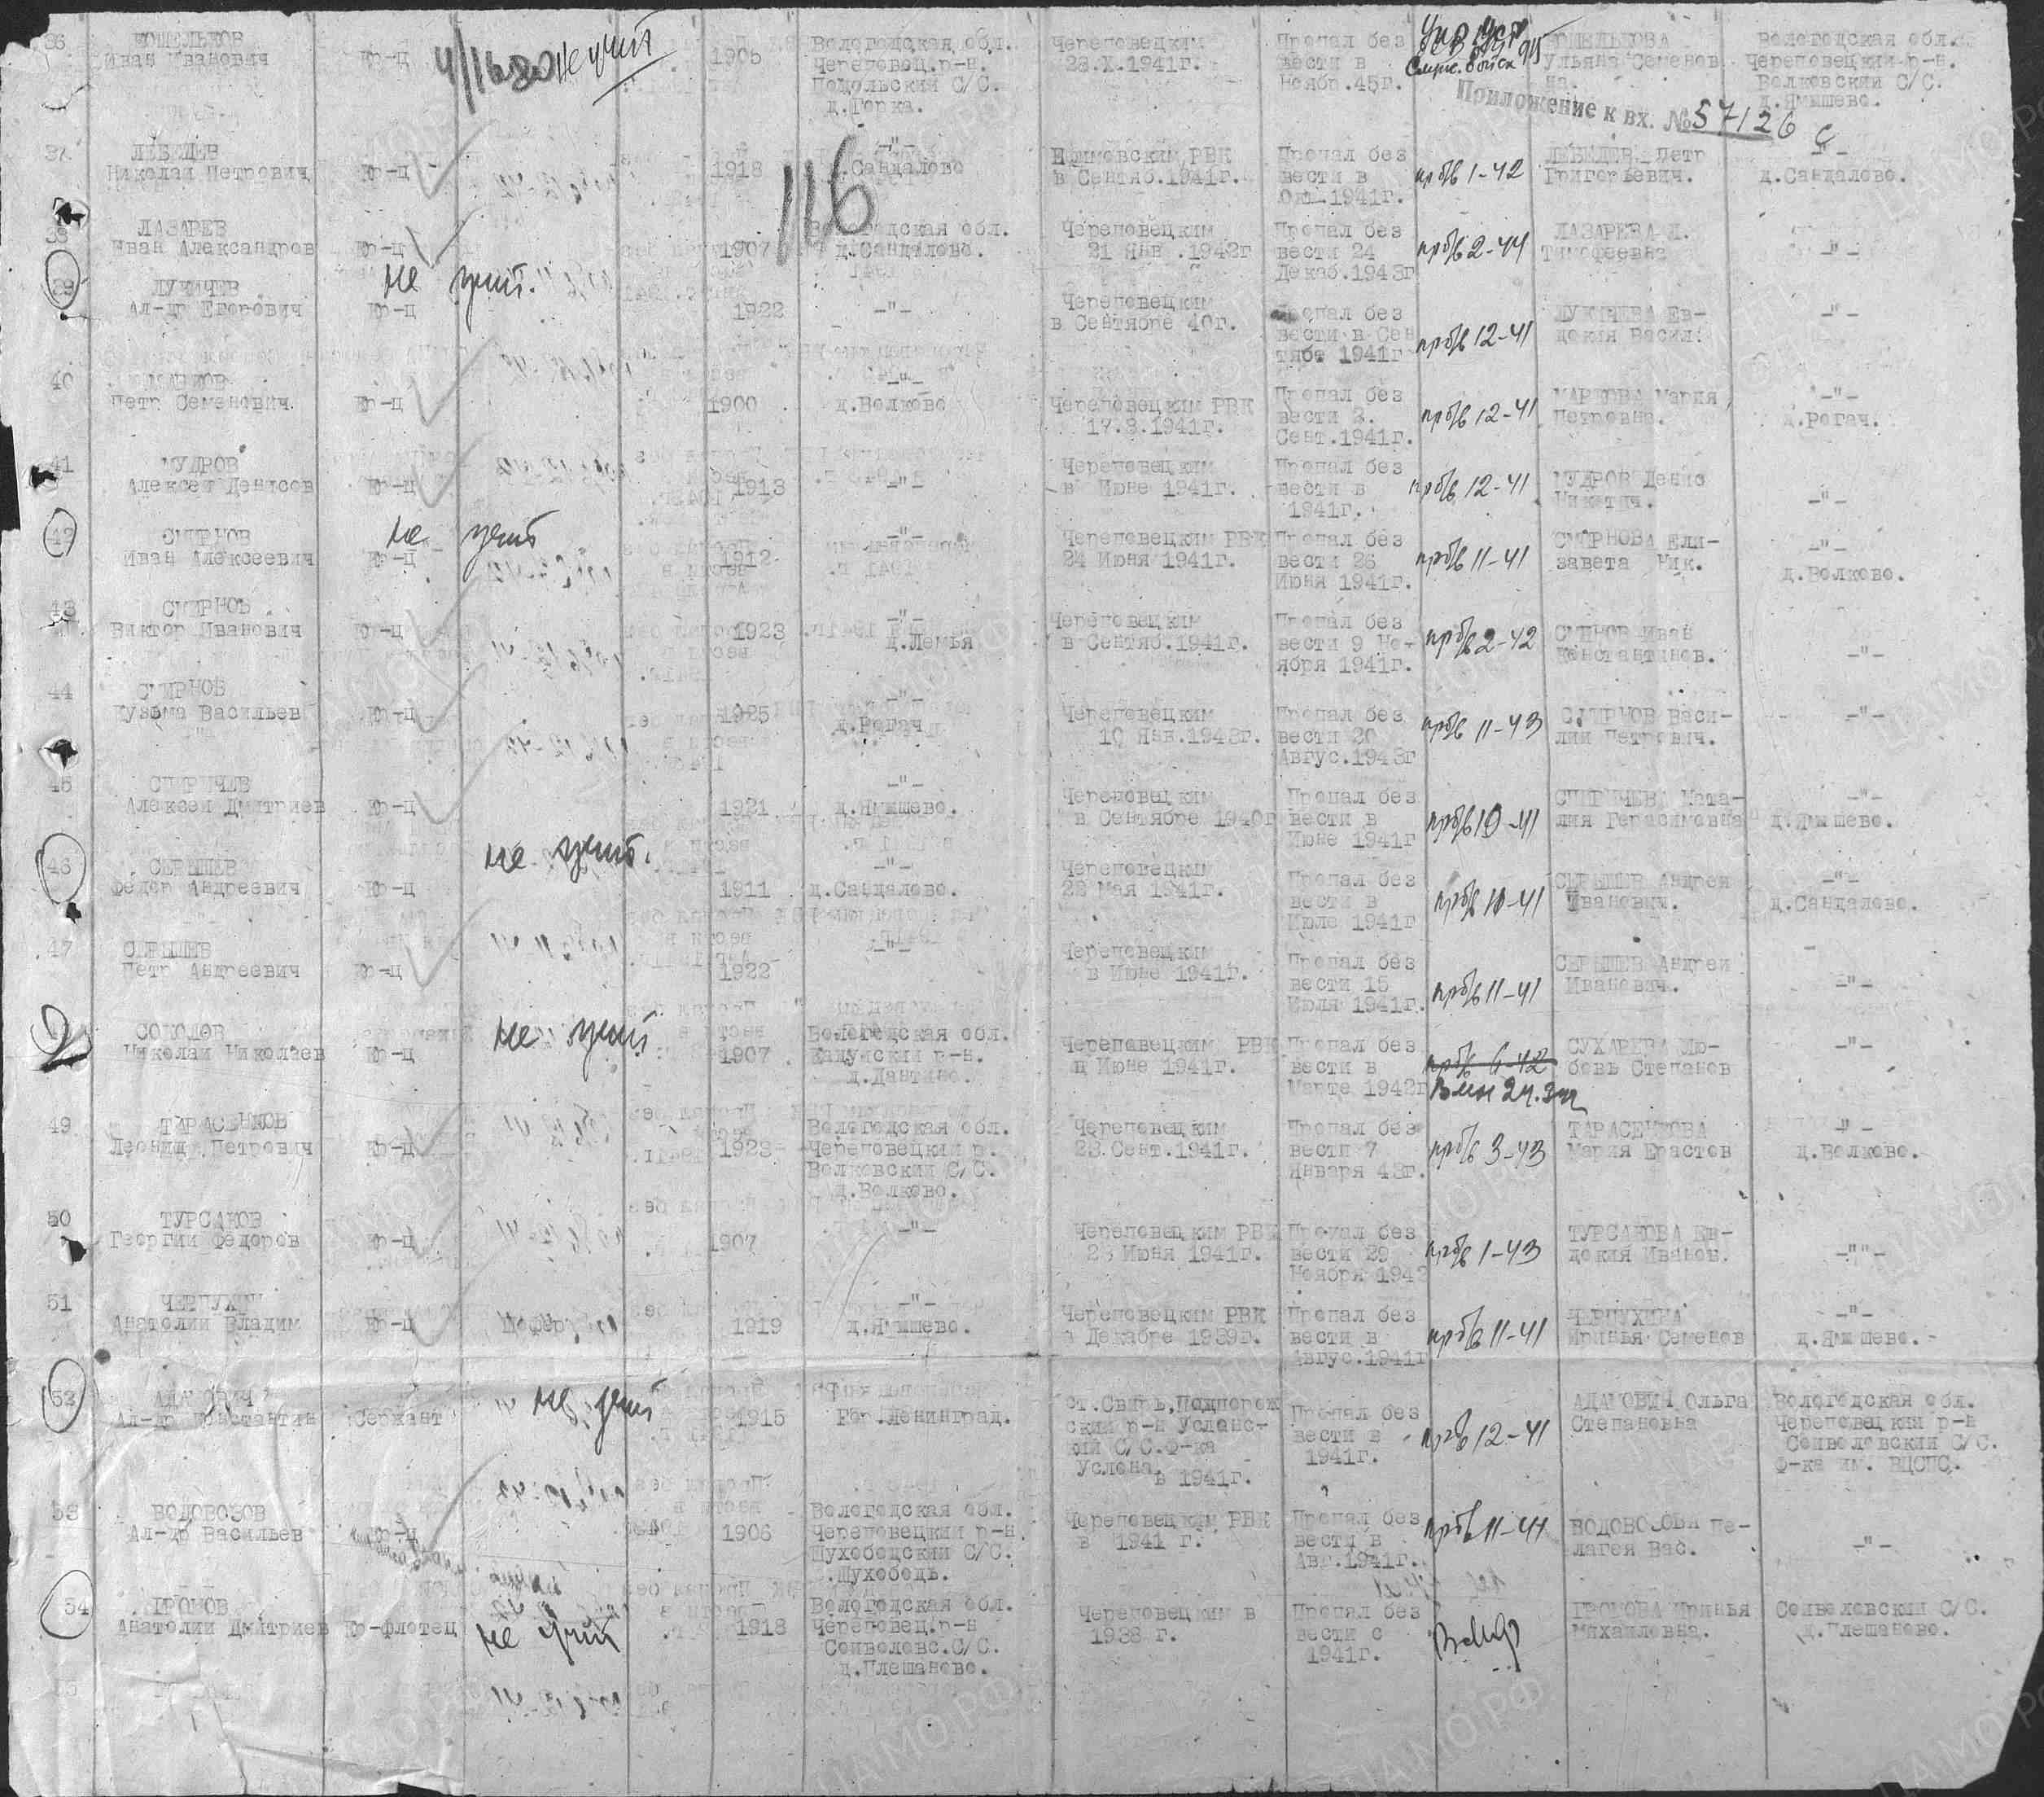 36 КОШЕЛЬКОВ
Иван Иванович Кр-ц 4/11680 не учит 1905 Вологодская обл. Череповец.р-н. Подольский С/С. д.Горка. Череповецким 28.X.1941г. Пропал без вести в Ноябр.45г. КОШЕЛЬКОВА Ульяна Семеновна. Вологодская обл. Череповецкий р-н. Волковский С/С. д.Ямышево.
Приложение к вх. №57126 с
116
37 ЛЕБЕДЕВ
Николай Петрович Кр-ц 1918 -"- д.Сандалово Ефимовским РВК в Сентяб.1941г. Пропал без вести в Окт.1941г. пр б/в 1-42 ЛЕБЕДЕВ Петр Григорьевич. -"- д.Сандалово.
38 ЛАЗАРЕВ
Иван Александров Кр-ц 1907 Вологодская обл. д.Сандалово. Череповецким 21 Янв .1942г Пропал без вести 24 Декаб.1943г пр б/в 2-44 ЛАЗАРЕВА Тимофеевна -"-
39 ЛУКИЧЕВ
Ал-др Егорович Кр-ц не учит. 1922 -"- Череповецким в Сентябре 40г. Пропал без вести в Сен тябр 1941г пр б/в 12-41 ЛУКИЧЕВА Ев-
докия Васил. -"-
40
Петр Семенович. Кр-ц 1900 -"- д.Волково Череповецким РВК 17.8.1941г. Пропал без вести 3. Сент.1941г. пр б/в 12-41 МАРКОВА Мария Петровна. -"- д.Рогач.
41 МУДРОВ
Алексей Денисов Кр-ц 1913 -"- Череповецким в Июне 1941г. Пропал без вести в 1941г. пр б/в 12-41 МУДРОВ Денис Никитич. -"-
42 СМИРНОВ
Иван Алексеевич Кр-ц не учит 1912 -"- Череповецким РВК 24 Июня 1941г. Пропал без вести 26 Июня 1941г. пр б/в 11-41 СМИРНОВА Ели-
завета Ник. -"- д.Волково.
43 СМИРНОВ
Виктор Иванович Кр-ц 1923 -"- д.Лемья Череповецким в Сентяб.1941г. Пропал без вести 9 Но-
ября 1941г. пр б/в 2-42 СМИРНОВ Иван Константинов. -"-
44 СМИРНОВ
Кузьма Васильев Кр-ц 1925 -"- д.Рогач Череповецким 10 Янв.1943г. Пропал без вести 20 Авгус.1943г пр б/в 11-43 СМИРНОВ Васи-
лий Петрович. -"-
45 СПИРИЧЕВ
Алексей Дмитриев Кр-ц 1921 -"- д.Ямышево. Череповецким в Сентябре 1940г Пропал без вести в Июне 1941г пр б/в 10-41 СПИРИЧЕВА Ната-
лия Герасимовна -"- д.Ямышево.
46 СЕРЫШЕВ
Федор Андреевич Кр-ц не учит. 1911 -"- д.Сандалово. Череповецким 22 Мая 1941г. Пропал без вести в Июле 1941г пр б/в 10-41 СЕРЫШЕВ Андрей Иванович. -"- д.Сандалово.
47 СЕРЫШЕВ
Петр Андреевич Кр-ц 1922 -"- Череповецким в Июне 1941г. Пропал без вести 15 Июля 1941г. пр б/в 11-41 СЕРЫШЕВ Андрей Иванович. -"-
СОКОЛОВ
Николай Николаев Кр-ц не учит 1907 Вологодская обл. Кадуйский р-н. д.Дантино. Череповецким РВК в Июне 1941г. Пропал без вести в Марте 1942г пр б/в 6-42 СУХАРЕВА Лю-
бовь Степанов -"-
49 ТАРАСЕНКОВ
Леонид Петрович Кр-ц 1923 Вологодская обл. Череповецкий р. Волковский С/С. д.Волково. Череповецким 23.Сент.1941г. Пропал без вести 7 Января 43г. пр б/в 3-43 ТАРАСЕНКОВА Мария Ерастов -"- д.Волково.
50 ТУРСАКОВ
Георгий Федоров Кр-ц 1907 -"- Череповецким РВК 23 Июня 1941г. Пропал без вести 29 Ноября 1942 пр б/в 1-43 ТУРСАКОВА Ев-
докия Иванов. -""-
51 ЧЕРПУХИН
Анатолий Владим Кр-ц Шофер 1919 -"- д.Ямышево. Череповецким РВК в Декабре 1939г. Пропал без вести в Авгус.1941г пр б/в 11-41 ЧЕРПУХИНА Иринья Семенов -"- д.Ямышево.
52 АДАМОВИЧ
Ал-др Константин Сержант не учит 1915 Гор.Ленинград. ст.Свирь,Подпорож ский р-н Усланс-
кий С/С.Ф-ка Услона, в 1941г. Пропал без вести в 1941г. пр б/в 12-41 АДАМОВИЧ Ольга Степановна Вологодская обл. Череповецкий р-н Сойволовский С/С. Ф-ка им. ВЦСПС.
53 ВОДОВОЗОВ
Ал-др Васильев Кр-ц 1906 Вологодская обл. Череповецкий р-н Шухободский С/С. с.Шухободь. Череповецким РВК в 1941 г. Пропал без вести в Авг.1941г. пр б/в 11-41 ВОДОВОЗОВА Пе-
лагея Вас. -"-
54 ГРОМОВ
Анатолий Дмитриев Кр-флотец не учит 1918 Вологодская обл. Череповец.р-н Сойволовс.С/С. д.Плешаново. Череповецким в 1938 г. Пропал без вести с 1941г. ВМФ ГРОМОВА Иринья Михайловна. Сойволовский С/С. д.Плешаново.